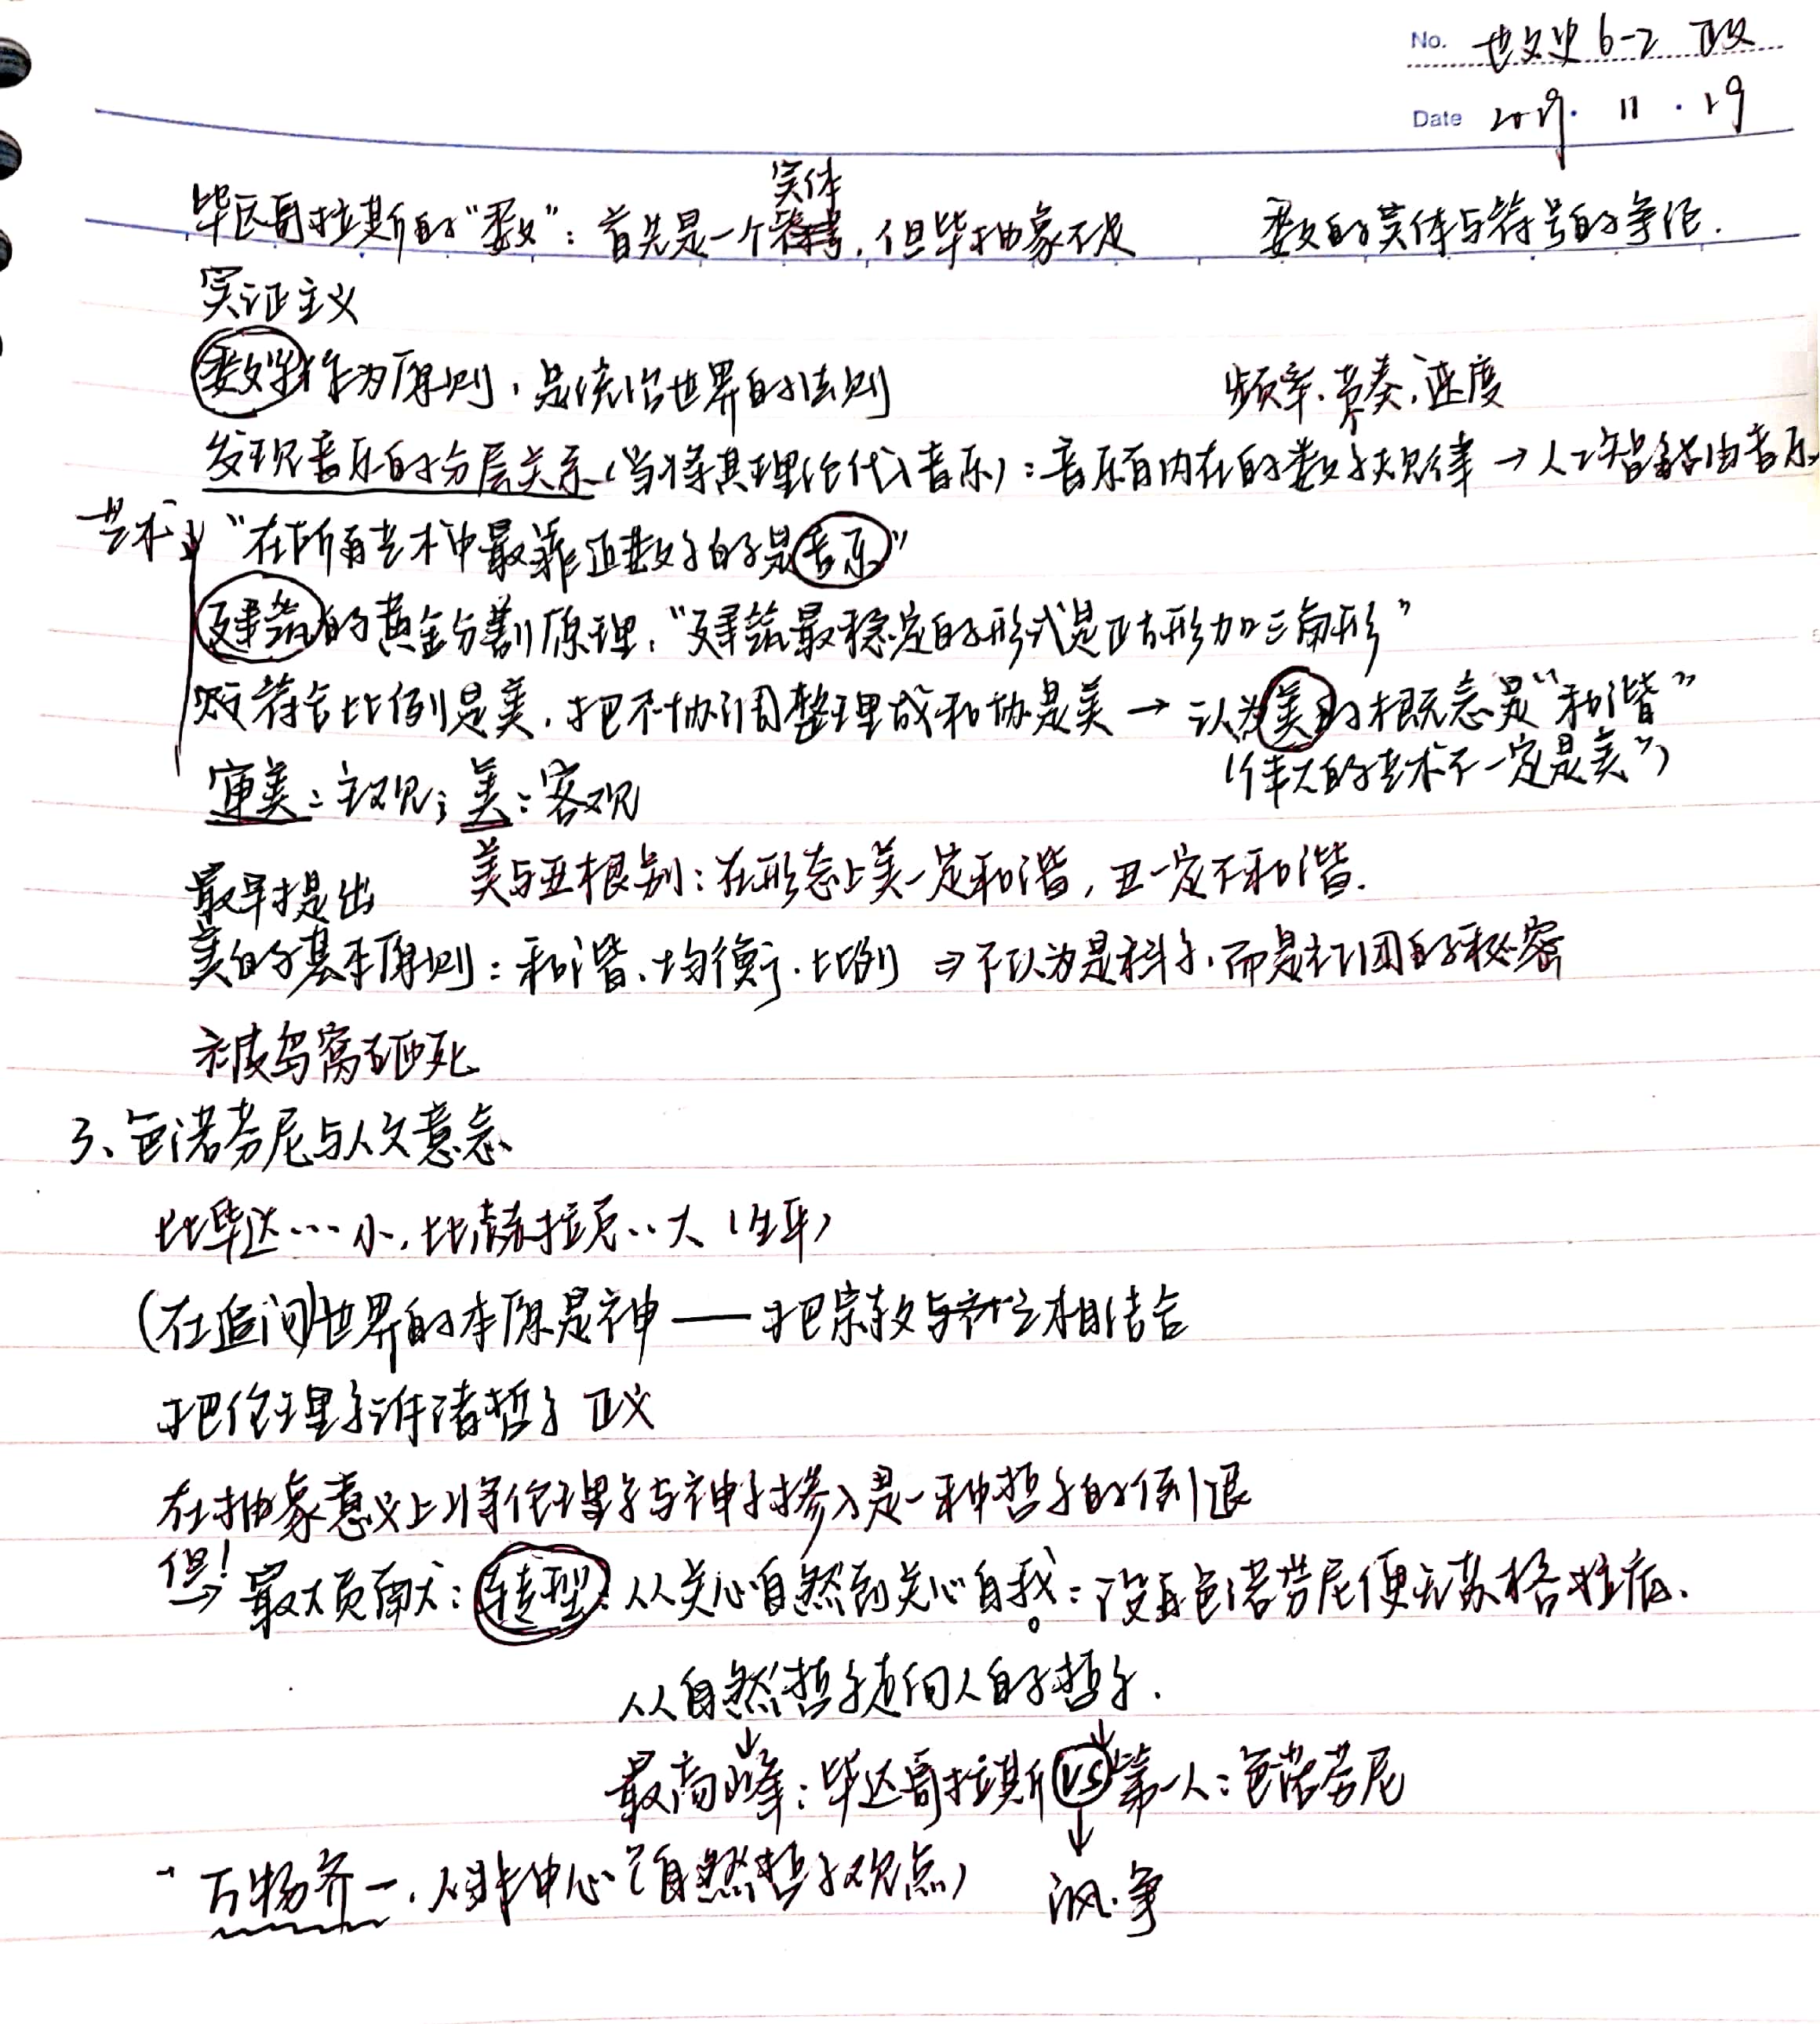 No. 世文史6-2 正政
Date 2019. 11. 19
实体
毕达哥拉斯的“数”：首先是一个符号，但毕抽象不足 数的实体与符号的争论.
实证主义
数学作为原则，是统治世界的法则 频率、节奏、速度
发现音乐的分层关系（当将其理论代入音乐）：音乐有内在的数学规律 → 人工智能作曲音乐
艺术 “在所有艺术中最靠近数学的是音乐”
建筑的黄金分割原理，“建筑最稳定的形式是正方形加三角形”
符合比例是美，把不协调整理成和协是美 → 认为美的概念是“和谐”
（“伟大的艺术不一定是美”）
审美：主观；美：客观
美与丑根别：在形态上美一定和谐，丑一定不和谐.
最早提出
美的基本原则：和谐、均衡、比例 ⇒ 不认为是科学，而是社团的秘密
被鸟窝砸死
3、色诺芬尼与人文意念
比毕达…小，比赫拉克..大（生平）
（在追问）世界的本原是神——把宗教与社会相结合
把伦理学诉诸哲学 正义
在抽象意义上将伦理学与神学掺入是一种哲学的倒退
但！
→ 最大贡献：转型：从关心自然到关心自我：没有色诺芬尼便无苏格拉底.
从自然哲学走向人的哲学.
最高峰：毕达哥拉斯 VS 第一人：色诺芬尼
万物齐一，人非中心（自然哲学观点） 讽.争